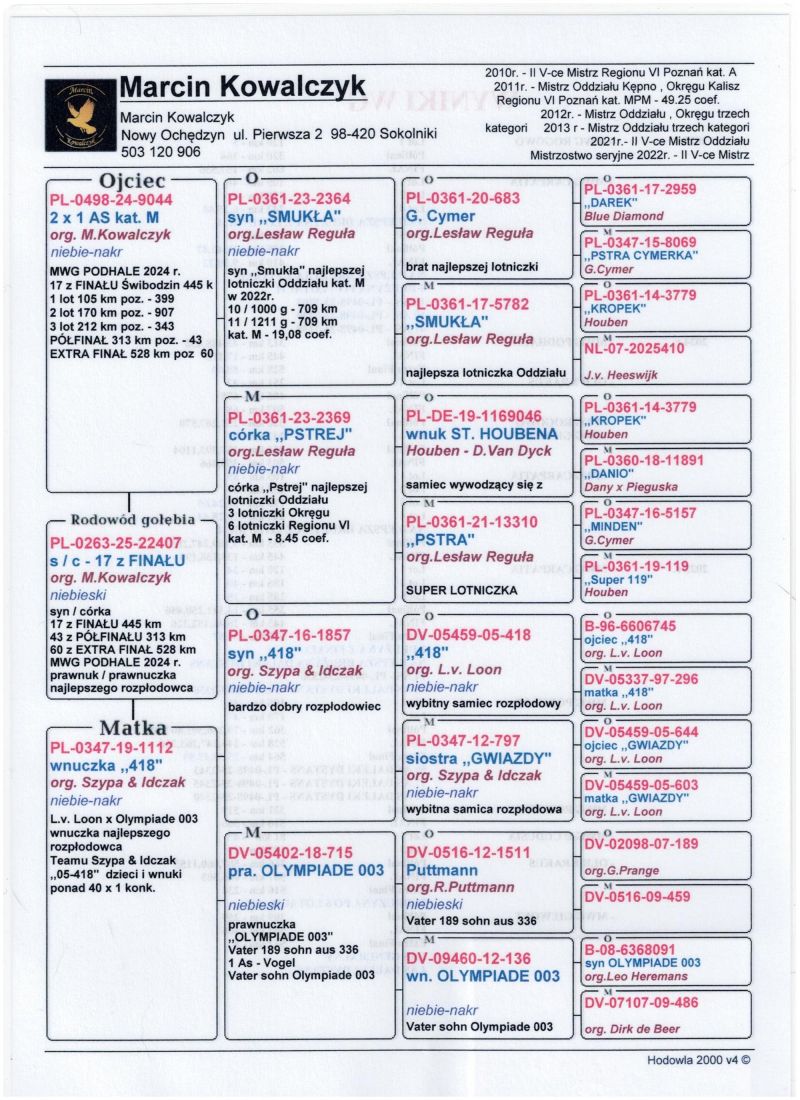 Marcin
Kowalczyk
Marcin Kowalczyk
Marcin Kowalczyk
Nowy Ochędzyn ul. Pierwsza 2 98-420 Sokolniki
503 120 906
2010r. - II V-ce Mistrz Regionu VI Poznań kat. A
2011r. - Mistrz Oddziału Kępno , Okręgu Kalisz
Regionu VI Poznań kat. MPM - 49.25 coef.
2012r. - Mistrz Oddziału , Okręgu trzech
kategori 2013 r - Mistrz Oddziału trzech kategori
2021r.- II V-ce Mistrz Oddziału
Mistrzostwo seryjne 2022r. - II V-ce Mistrz
Ojciec
PL-0498-24-9044
2 x 1 AS kat. M
org. M.Kowalczyk
niebie-nakr
MWG PODHALE 2024 r.
17 z FINAŁU Świbodzin 445 k
1 lot 105 km poz. - 399
2 lot 170 km poz. - 907
3 lot 212 km poz. - 343
PÓŁFINAŁ 313 km poz. - 43
EXTRA FINAŁ 528 km poz 60
Rodowód gołębia
PL-0263-25-22407
s / c - 17 z FINAŁU
org. M.Kowalczyk
niebieski
syn / córka
17 z FINAŁU 445 km
43 z PÓŁFINAŁU 313 km
60 z EXTRA FINAŁ 528 km
MWG PODHALE 2024 r.
prawnuk / prawnuczka
najlepszego rozpłodowca
Matka
PL-0347-19-1112
wnuczka ,,418"
org. Szypa & Idczak
niebie-nakr
L.v. Loon x Olympiade 003
wnuczka najlepszego
rozpłodowca
Teamu Szypa & Idczak
,,05-418" dzieci i wnuki
ponad 40 x 1 konk.
O
PL-0361-23-2364
syn ,,SMUKŁA"
org.Lesław Reguła
niebie-nakr
syn ,,Smukła" najlepszej
lotniczki Oddziału kat. M
w 2022r.
10 / 1000 g - 709 km
11 / 1211 g - 709 km
kat. M - 19,08 coef.
M
PL-0361-23-2369
córka ,,PSTREJ"
org.Lesław Reguła
niebie-nakr
córka ,,Pstrej" najlepszej
lotniczki Oddziału
3 lotniczki Okręgu
6 lotniczki Regionu VI
kat. M - 8.45 coef.
O
PL-0347-16-1857
syn ,,418"
org. Szypa & Idczak
niebie-nakr
bardzo dobry rozpłodowiec
M
DV-05402-18-715
pra. OLYMPIADE 003
niebieski
prawnuczka
,,OLYMPIADE 003"
Vater 189 sohn aus 336
1 As - Vogel
Vater sohn Olympiade 003
O
PL-0361-20-683
G. Cymer
org.Lesław Reguła
brat najlepszej lotniczki
M
PL-0361-17-5782
,,SMUKŁA"
org.Lesław Reguła
najlepsza lotniczka Oddziału
O
PL-DE-19-1169046
wnuk ST. HOUBENA
Houben - D.Van Dyck
samiec wywodzący się z
M
PL-0361-21-13310
,,PSTRA"
org.Lesław Reguła
SUPER LOTNICZKA
O
DV-05459-05-418
,,418"
org. L.v. Loon
niebie-nakr
wybitny samiec rozpłodowy
M
PL-0347-12-797
siostra ,,GWIAZDY"
org. Szypa & Idczak
niebie-nakr
wybitna samica rozpłodowa
O
DV-0516-12-1511
Puttmann
org.R.Puttmann
niebieski
Vater 189 sohn aus 336
M
DV-09460-12-136
wn. OLYMPIADE 003
niebie-nakr
Vater sohn Olympiade 003
O
PL-0361-17-2959
,,DAREK"
Blue Diamond
M
PL-0347-15-8069
,,PSTRA CYMERKA"
G.Cymer
O
PL-0361-14-3779
,,KROPEK"
Houben
M
NL-07-2025410
J.v. Heeswijk
O
PL-0361-14-3779
,,KROPEK"
Houben
M
PL-0360-18-11891
,,DANIO"
Dany x Pieguska
O
PL-0347-16-5157
,,MINDEN"
G.Cymer
M
PL-0361-19-119
,,Super 119"
Houben
O
B-96-6606745
ojciec ,,418"
org. L.v. Loon
M
DV-05337-97-296
matka ,,418"
org. L.v. Loon
O
DV-05459-05-644
ojciec ,,GWIAZDY"
org. L.v. Loon
M
DV-05459-05-603
matka ,,GWIAZDY"
org. L.v. Loon
O
DV-02098-07-189
org.G.Prange
M
DV-0516-09-459
O
B-08-6368091
syn OLYMPIADE 003
org.Leo Heremans
M
DV-07107-09-486
org. Dirk de Beer
Hodowla 2000 v4 ©